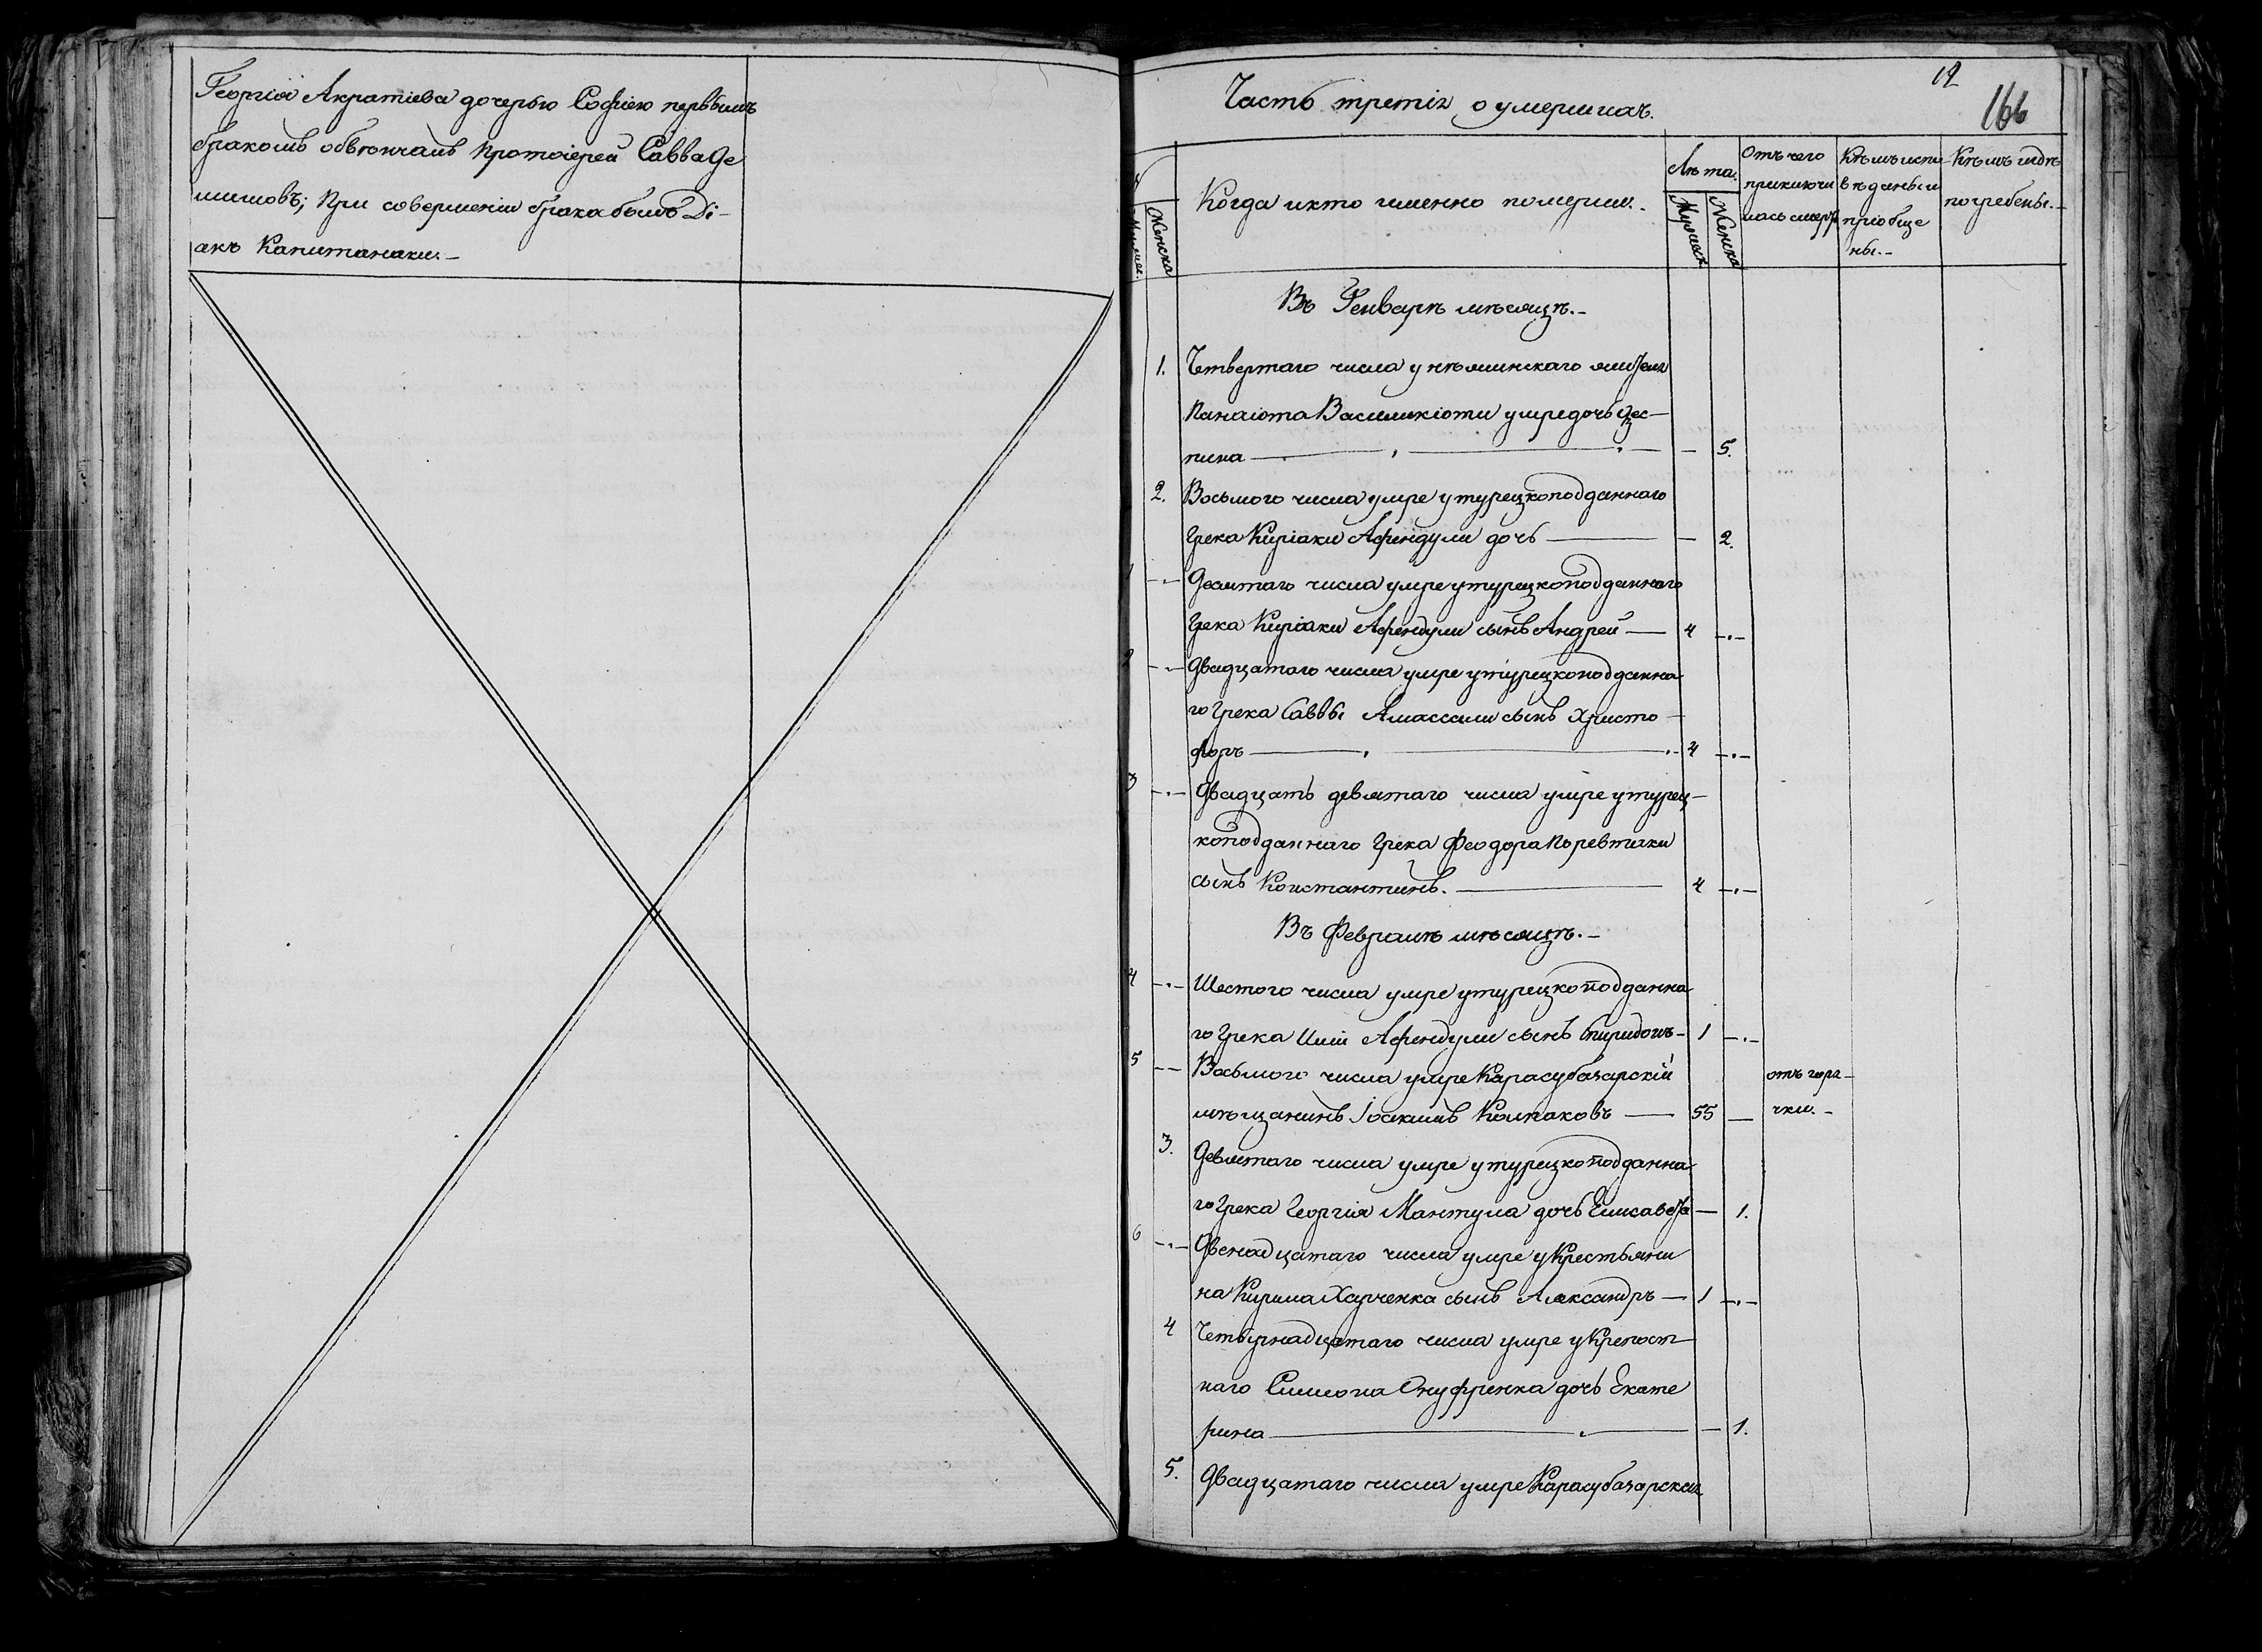 Георгія Акратіева дочерью Софіею первымъ
бракомъ обвѣнчалъ Протоіерей Савва Де
шимовъ; При совершеніи брака былъ Ді-
акъ Капитанаки.-
12
166
Часть третія о умершихъ.
Мужеск.
Женска
Когда и кто именно померли.-
Лѣта.
Мужеск
Женска
Отъ чего
приключи
лась смерть
Кѣмъ испо
вѣданы и
пріобще
ны.-
Кѣмъ и гдѣ
погребены.-
Въ Генварѣ мѣсяцѣ.-
1. Четвертаго числа у нѣжинскаго жителя
Панаіота Василикіоти умре дочь Дес-
пина — 5.
2. Восьмого числа умре у турецкоподданнаго
Грека Киріаки Афендули дочь — 2.
1 Десятаго числа умре у турецкоподданнаго
Грека Киріаки Афендули сынъ Андрей — 4
2 Двадцатаго числа умре у турецкоподданна
го Грека Саввы Амассали сынъ Христо-
форъ — 4
3 Двадцать девятаго числа умре у турец-
коподданнаго Грека Феодора Поревтики
сынъ Константинъ. — 4
Въ Февралѣ мѣсяцѣ.-
4 Шестого числа умре у турецкоподданна
го Грека Иліи Афендули сынъ Спиридонъ - 1
5 Восьмого числа умре Карасубазарскій отъ горя-
мѣщанинъ Іоакимъ Колпаковъ — 55 — чки.-
3. Девятаго числа умре у турецкоподданна
го Грека Георгія Мантула дочь Елисавета — 1.
6 Двенадцатаго числа умре у Крестьяни
на Кирила Харченка сынъ Александръ — 1
4 Четырнадцатаго числа умре у Крепост
наго Симеона Онуфринка дочь Екате
рина — 1.
5. Двадцатаго числа умре Карасубазарская